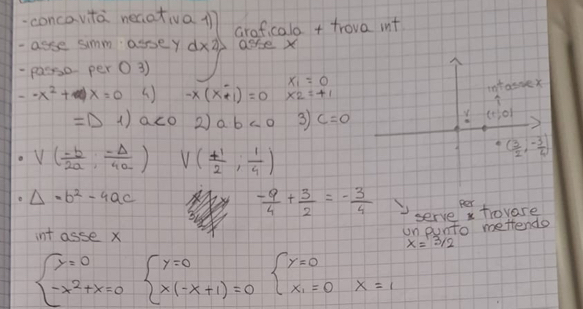 -concavità negativa 1)
- asse simm: asse y dx 2)
- passa per O 3)
graficala + trova int
asse x
- -x² + x = 0 4)
-x(x-1) = 0
x₁ = 0
x₂ = +1
=D 1) a<0 2) ab<0 3) c=0
• V (-b/2a ; -Δ/4a) V (+1/2 ; 1/4)
• Δ = b² - 4ac
-9/4 + 3/2 = -3/4
int asse x
(1;0)
V
(3/2, -3/4)
↘ serve per trovare
un punto mettendo
x = 3/2
int asse x
{y = 0
-x² + x = 0
{y = 0
x(-x+1) = 0
{y = 0
x₁ = 0 x = 1